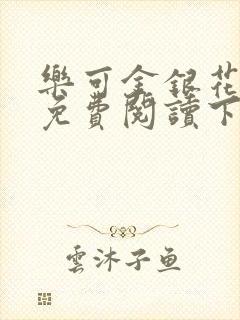 樂可金銀花
免費閱讀下
雲沐子魚